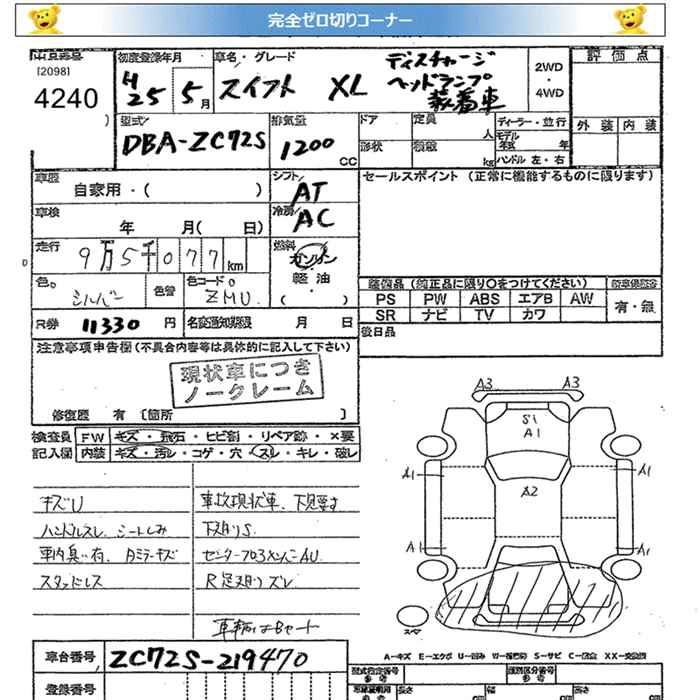 完全ゼロ切りコーナー
[2098]
4240
初度登録年月
H 25 5月
車名・グレード
スイフト XL
ディスチャージ
ヘッドランプ
装着車
2WD
・
4WD
評価点
外装 内装
型式
DBA-ZC72S
排気量
1200 CC
ドア 定員 人
形状 積載 kg
ディーラー・並行
モデル 年
ハンドル 左・右
車歴
自家用・( )
シフト
AT
セールスポイント (正常に機能するものに限ります)
車検
年 月( 日)
冷房
AC
走行
9万5千077 km
燃料
ガソリン
軽油
( )
色
シルバー
色替
色コードNo
ZMU
装備品 (純正品に限り○をつけてください)
PS PW ABS エアB AW
SR ナビ TV カワ
有・無
R券 11330 円
名変通知期限 月 日
後日品
注意事項申告欄(不具合内容等は具体的に記入して下さい)
現状車につき
ノークレーム
修復歴 有 [箇所 ]
検査員 FW キズ・飛石・ヒビ割・リペア跡・×要
記入欄 内装 キズ・汚レ・コゲ・穴・スレ・キレ・破レ
キズU
ハンドルスレ、シートしみ
車内臭い有、Aミラーキズ
スタッドレス
事故現状車、下見要す
下廻りS
R足廻りズレ
車輌はBヤード
A3 A3
S1
A1
A2
A1 A1
A1 A1
スペア
A-キズ E-エクボ U-凹み W-補修跡 S-サビ C-腐食 XX-交換済
車台番号 ZC72S-219470
登録番号
型式指定番号
参考
類別区分番号
参考
長さ cm
幅 cm
高さ cm